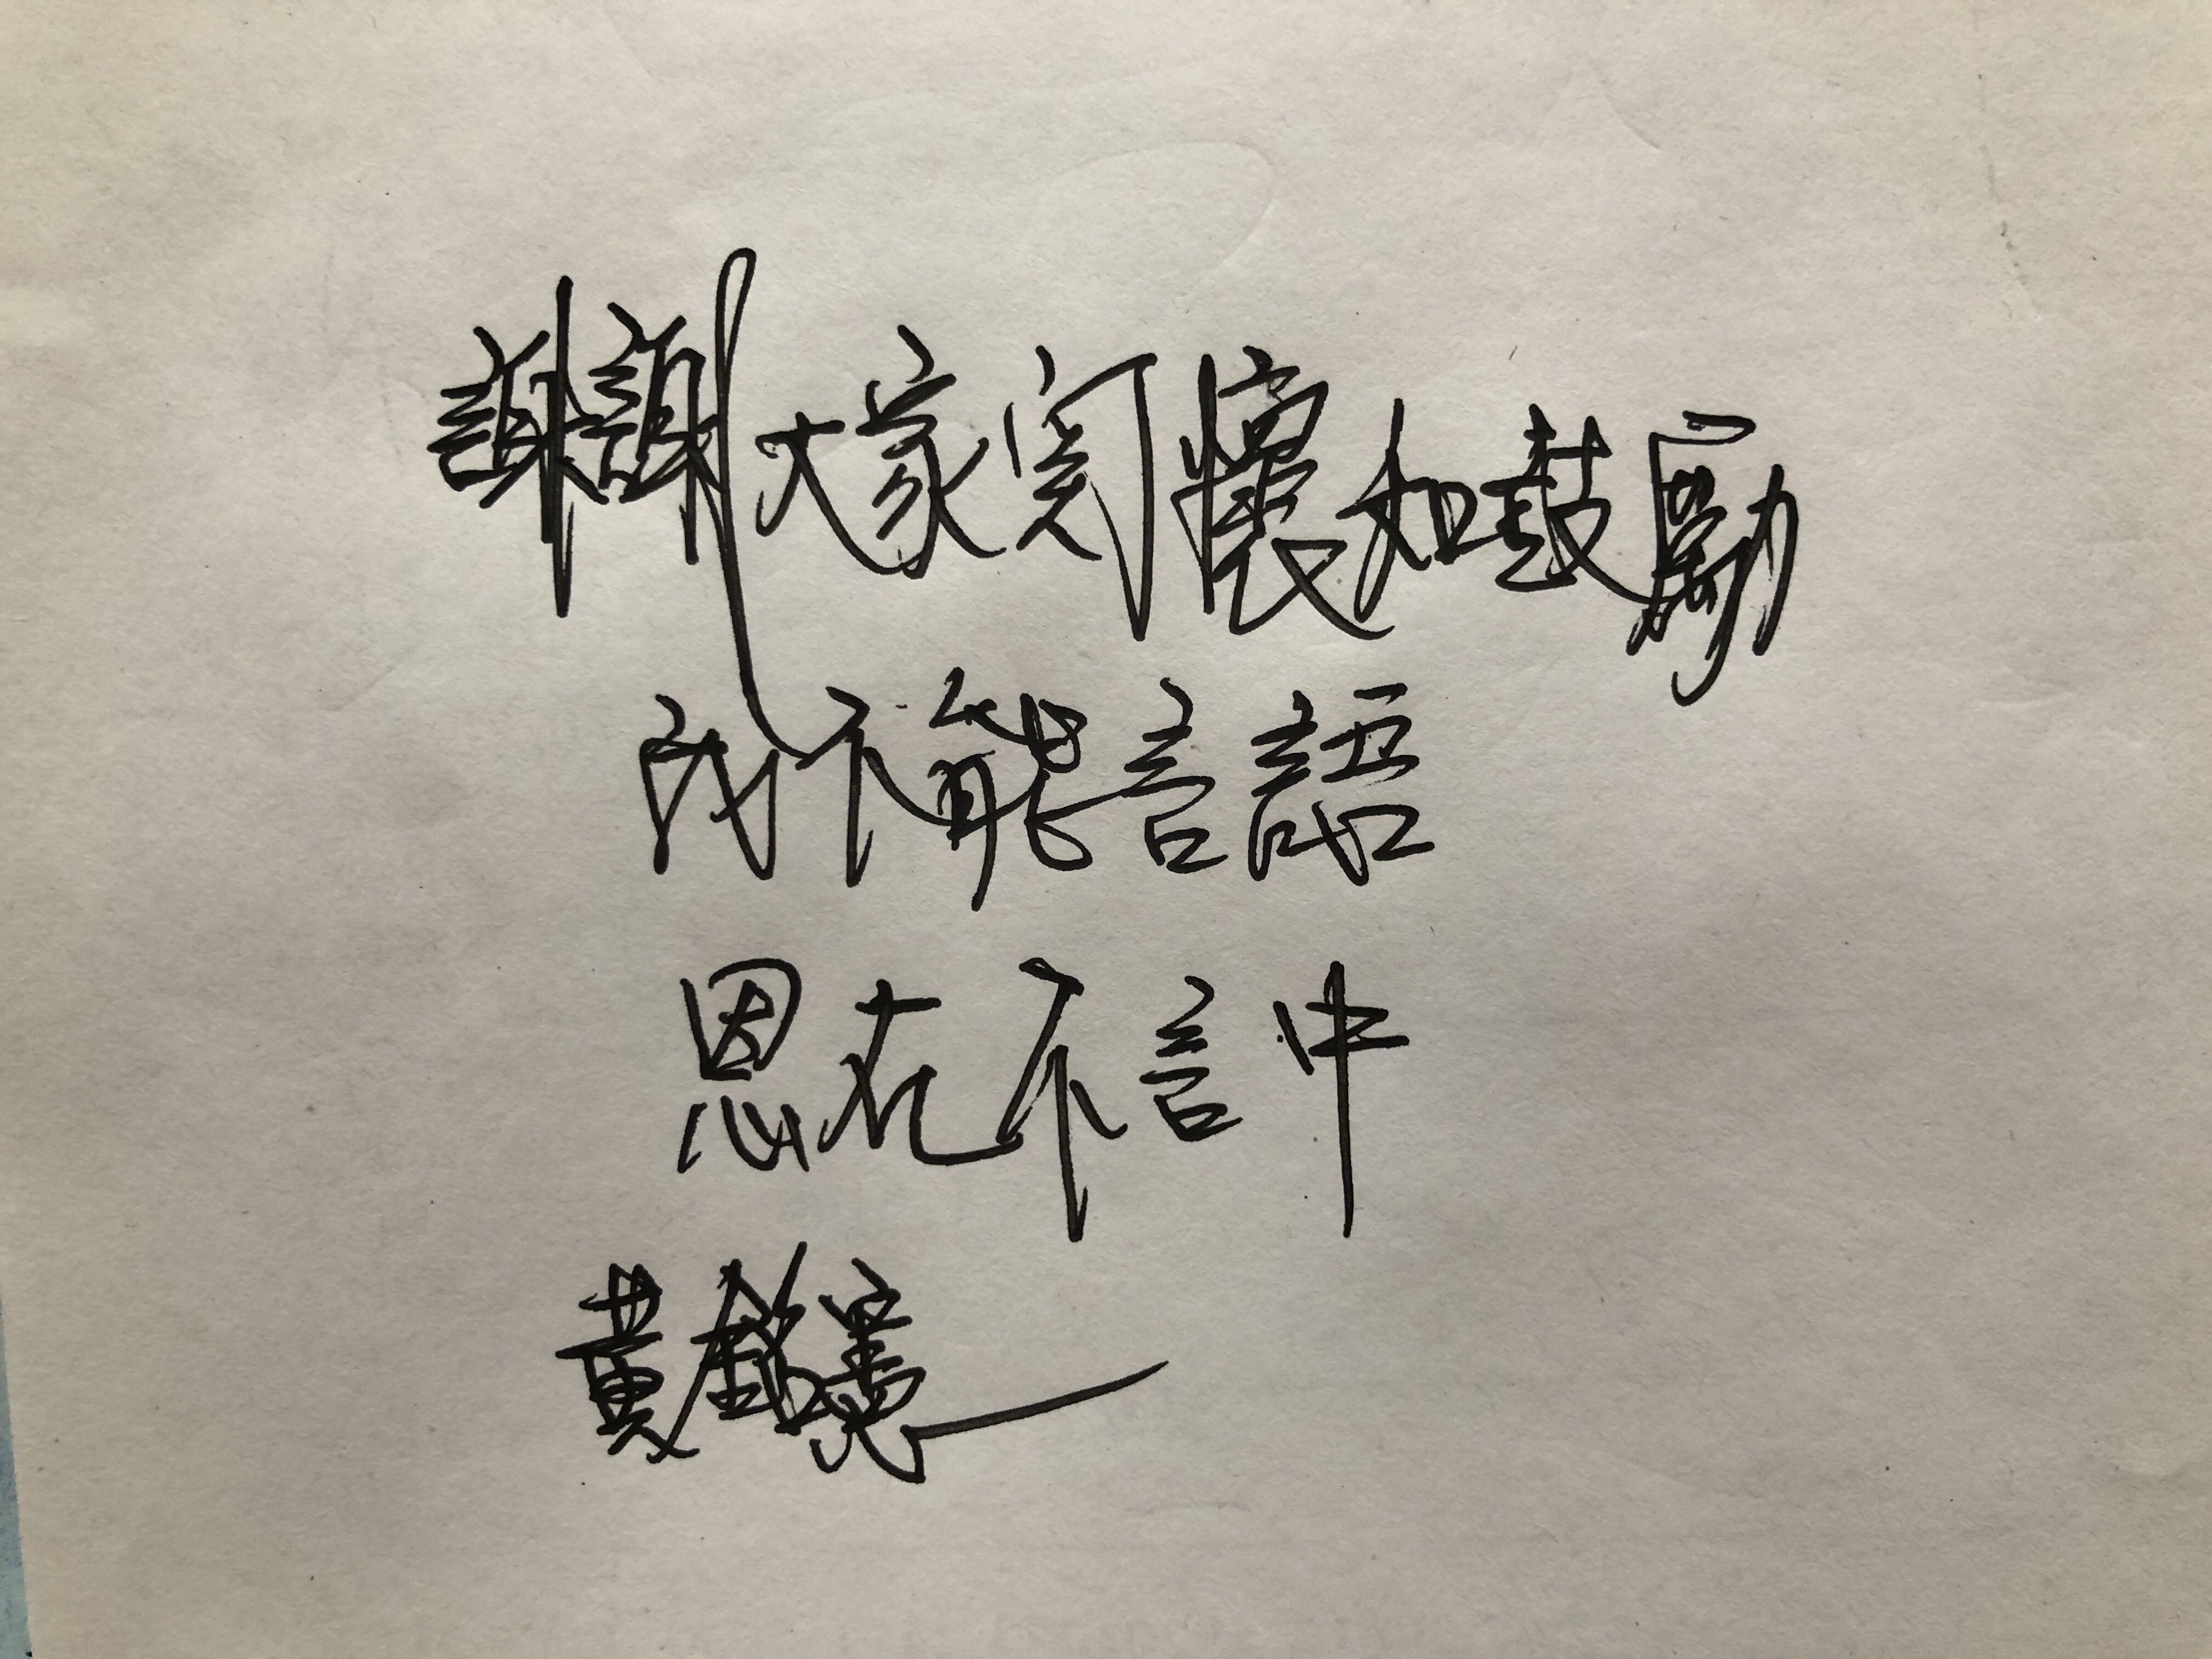 謝謝大家関懷和鼓勵
我不能言語
恩在不言中
黃銘